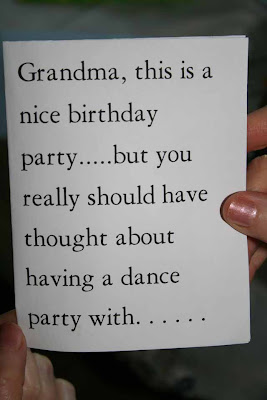 Grandma, this is a
nice birthday
party.....but you
really should have
thought about
having a dance
party with. . . . . .